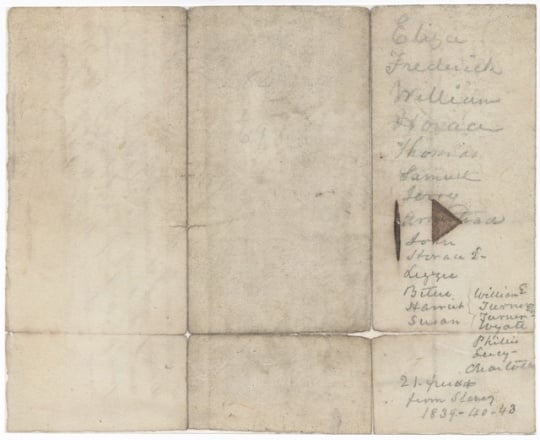 Eliza
Frederick
William
Horace
Thomas
Samuel
Jerry
John
Horace E-
Lizzie
Harriet
Susan
William E
Turner
Turner
Wyatt
Phillis
Lucy-
Charlotte
21
from
1839-40-43